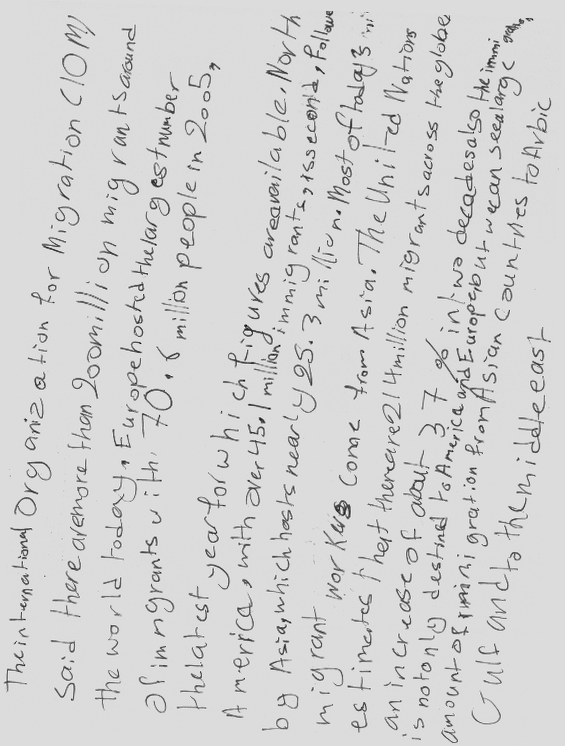 The international Organization for Migration (IOM)
Said there are more than 200 million migrants around
the world today. Europe hosted the largest number
Of immigrants with 70.6 million people in 2005,
the latest year for which figures are available. North
America, with over 45.1 million immigrants, is second, followe
by Asia, which hosts nearly 25.3 million. Most of today's
migrant workers come from Asia. The United Nations
estimates there are 214 million migrants across the globe
an increase of about 37 % in two decades also the immi
is not only destined to America and Europe but we can see a large
amount of immigration from Asian Countries to Arbic
Gulf and to the middle east